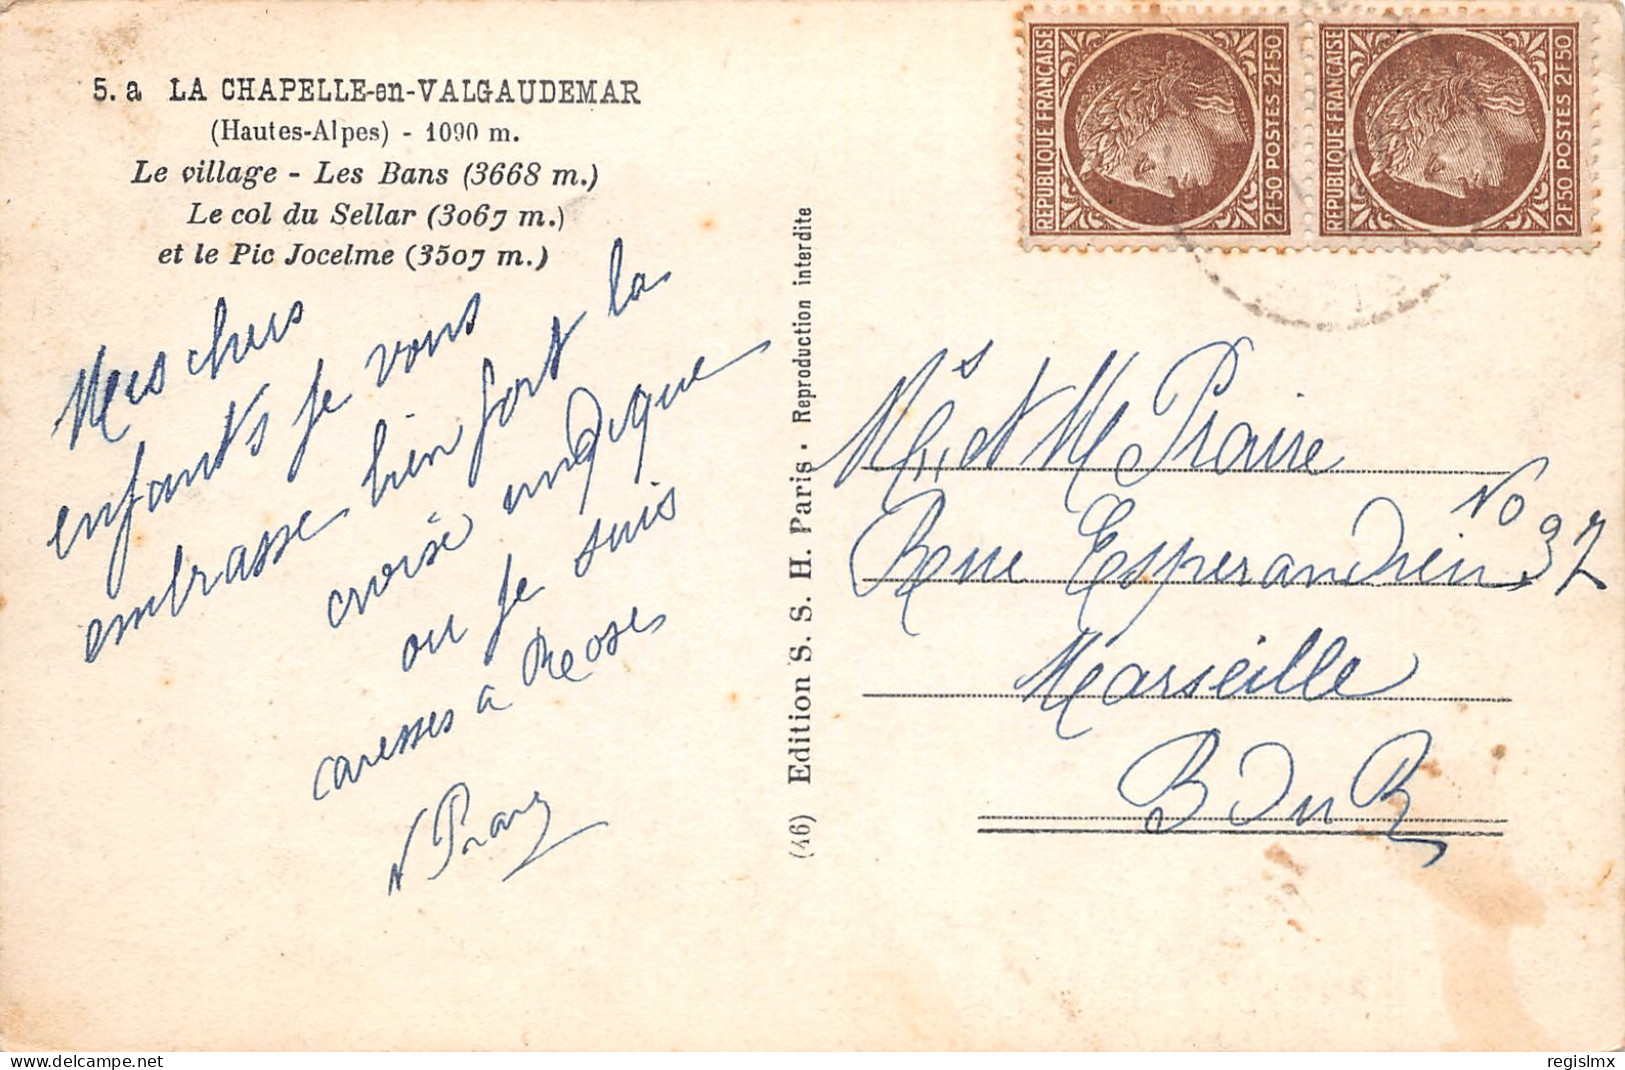 5. a LA CHAPELLE-en-VALGAUDEMAR
(Hautes-Alpes) - 1090 m.
Le village - Les Bans (3668 m.)
Le col du Sellar (3067 m.)
et le Pic Jocelme (3507 m.)
Mes chers
enfants je vous
embrasse bien fort la
croisé indique
ou je suis
caresses a
(46) Edition S. S. H. Paris · Reproduction interdite
REPUBLIQUE FRANÇAISE
2F.50 POSTES 2F.50
REPUBLIQUE FRANÇAISE
2F.50 POSTES 2F.50
Mr et Me Praire
Rue Esperandieu No 37
Marseille
B du R
Mis en vente sur Delcampe.net par
regislmx